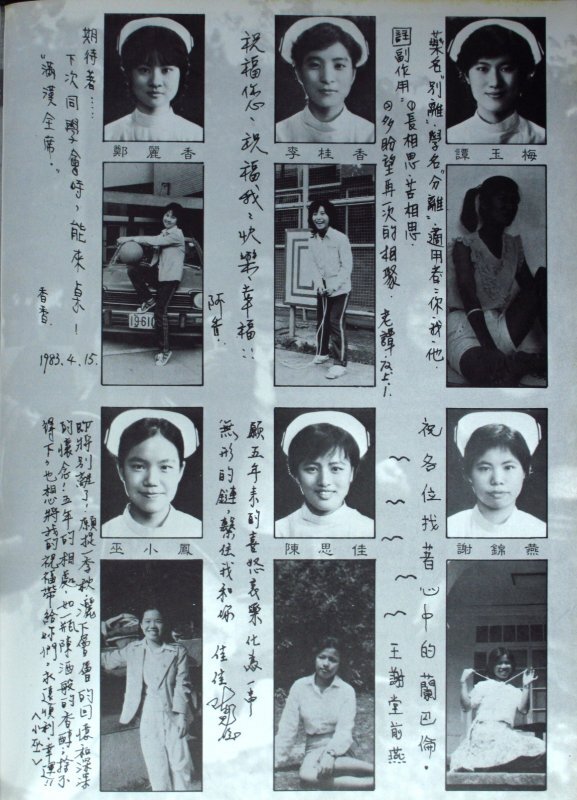 譚玉梅
藥名"別離"學名"分離"適用者:你.我.他.
註 副作用:①長相思.苦相思.
②多盼望再一次的相聚. 老譚
李桂香
祝福您、祝福我:快樂、幸福!!
阿香.
鄭麗香
期待著....
下次同學會時,能來桌!
"滿漢全席."
香香.
1983.4.15.
謝錦燕
祝各位找著心中的蘭巴倫.
王謝堂前燕
陳思佳
願五年來的喜怒哀樂化為一串
無形的鏈,繫住我和妳
佳佳
巫小鳳
即將別離了,願掬一季秋,灑下的回憶和深深
的懷念!五年的相處,如一瓶陳酒般的香醇,捨不
得下,也想將我的祝福帶給妳們:永遠順利幸運!!
<小巫>